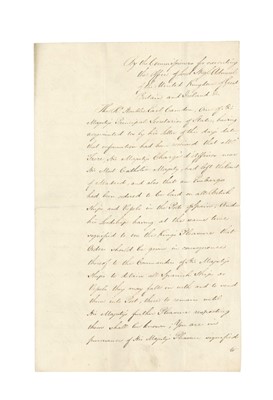 By the Commissioners for executing
the Office of Lord High Admiral
of the United Kingdom of Great
Britain and Ireland &c
Earl Camden, One of His
Majesty's Principal Secretaries of State, having
acquainted us by his letter of this day's date
that information had been received that Mr
Frere His Majesty's Chargé d'Affaires near
His Most Catholic Majesty, had left the Court
of and also that an Embargo
had been ordered to be laid on all British
Ships and Vessels in the Port of and
his Lordship having at the same time
signified to us the King's Pleasure that
Orders should be given in consequence
thereof to the Commanders of His Majesty's
Ships to detain all Spanish Ships or
Vessels they may fall in with and to send
them into Port, there to remain until
His Majesty's further Pleasure respecting
them shall be known; You are in
pursuance of His Majesty's Pleasure signified